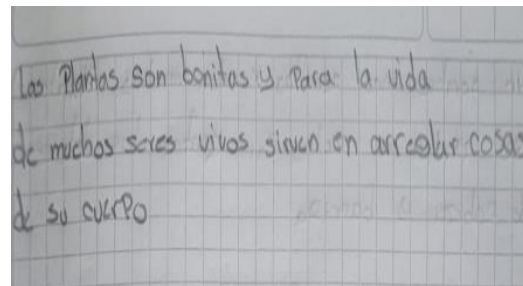 Las Plantas son bonitas y Para la vida
de muchos seres vivos sirven en arreglar cosas
de su cuerpo